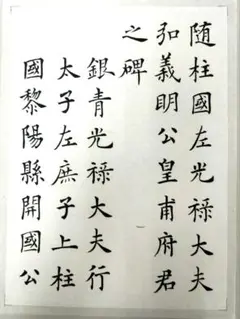 随柱國左光禄大夫
弘義明公皇甫府君
之碑
銀青光禄大夫行
太子左庶子上柱
國黎陽縣開國公